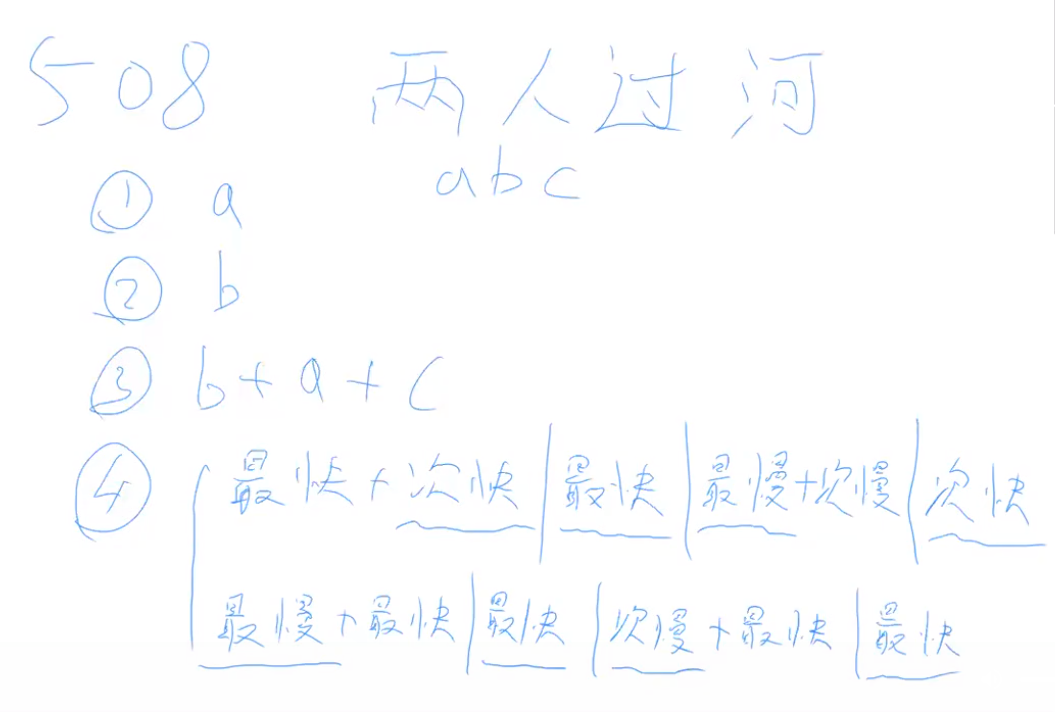 508 两人过河
abc
① a
② b
③ b+a+c
④ 最快+次快|最快|最慢+次慢|次快
最慢+最快|最快|次慢+最快|最快